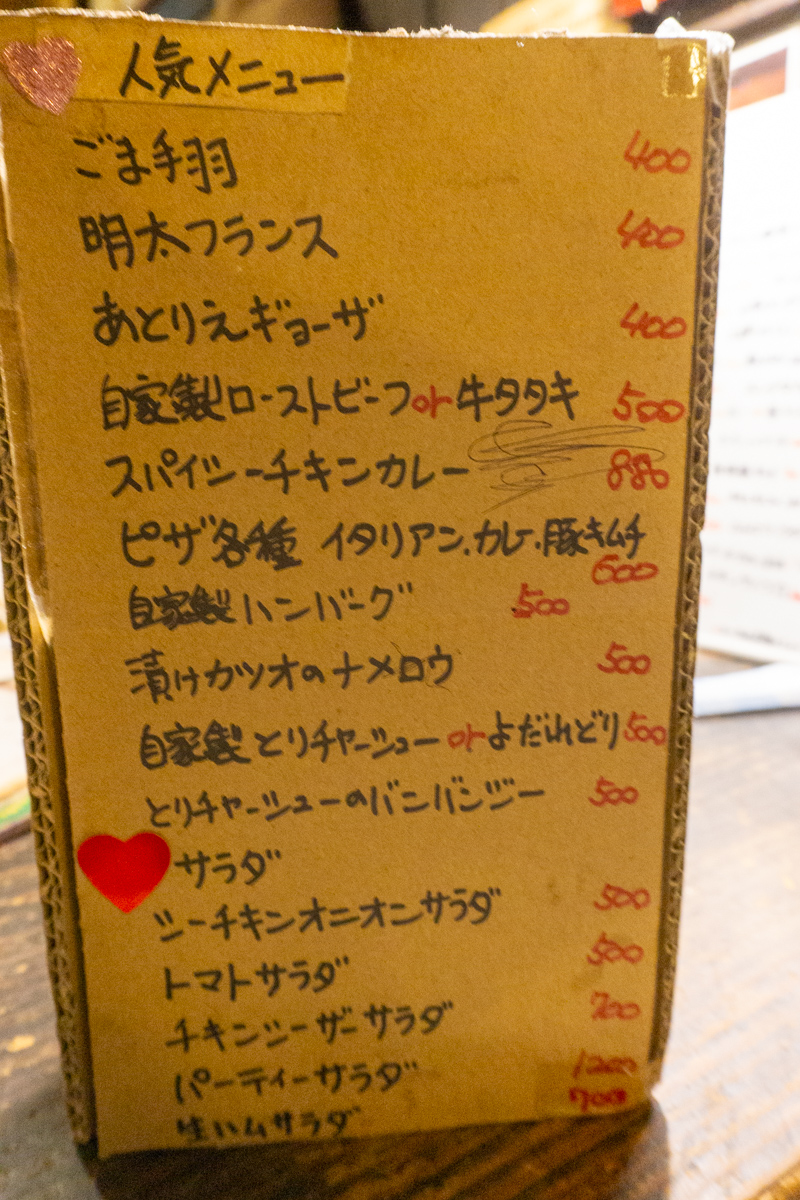 人気メニュー
ごま手羽 400
明太フランス 400
あとりえギョーザ 400
自家製ローストビーフor牛タタキ 500
スパイシーチキンカレー 880
ピザ各種 イタリアン.カレー.豚キムチ
600
自家製ハンバーグ 500
漬けカツオのナメロウ 500
自家製とりチャーシューorよだれどり 500
とりチャーシューのバンバンジー 500
サラダ
シーチキンオニオンサラダ 500
トマトサラダ 500
チキンシーザーサラダ 700
パーティーサラダ 1200
生ハムサラダ 700